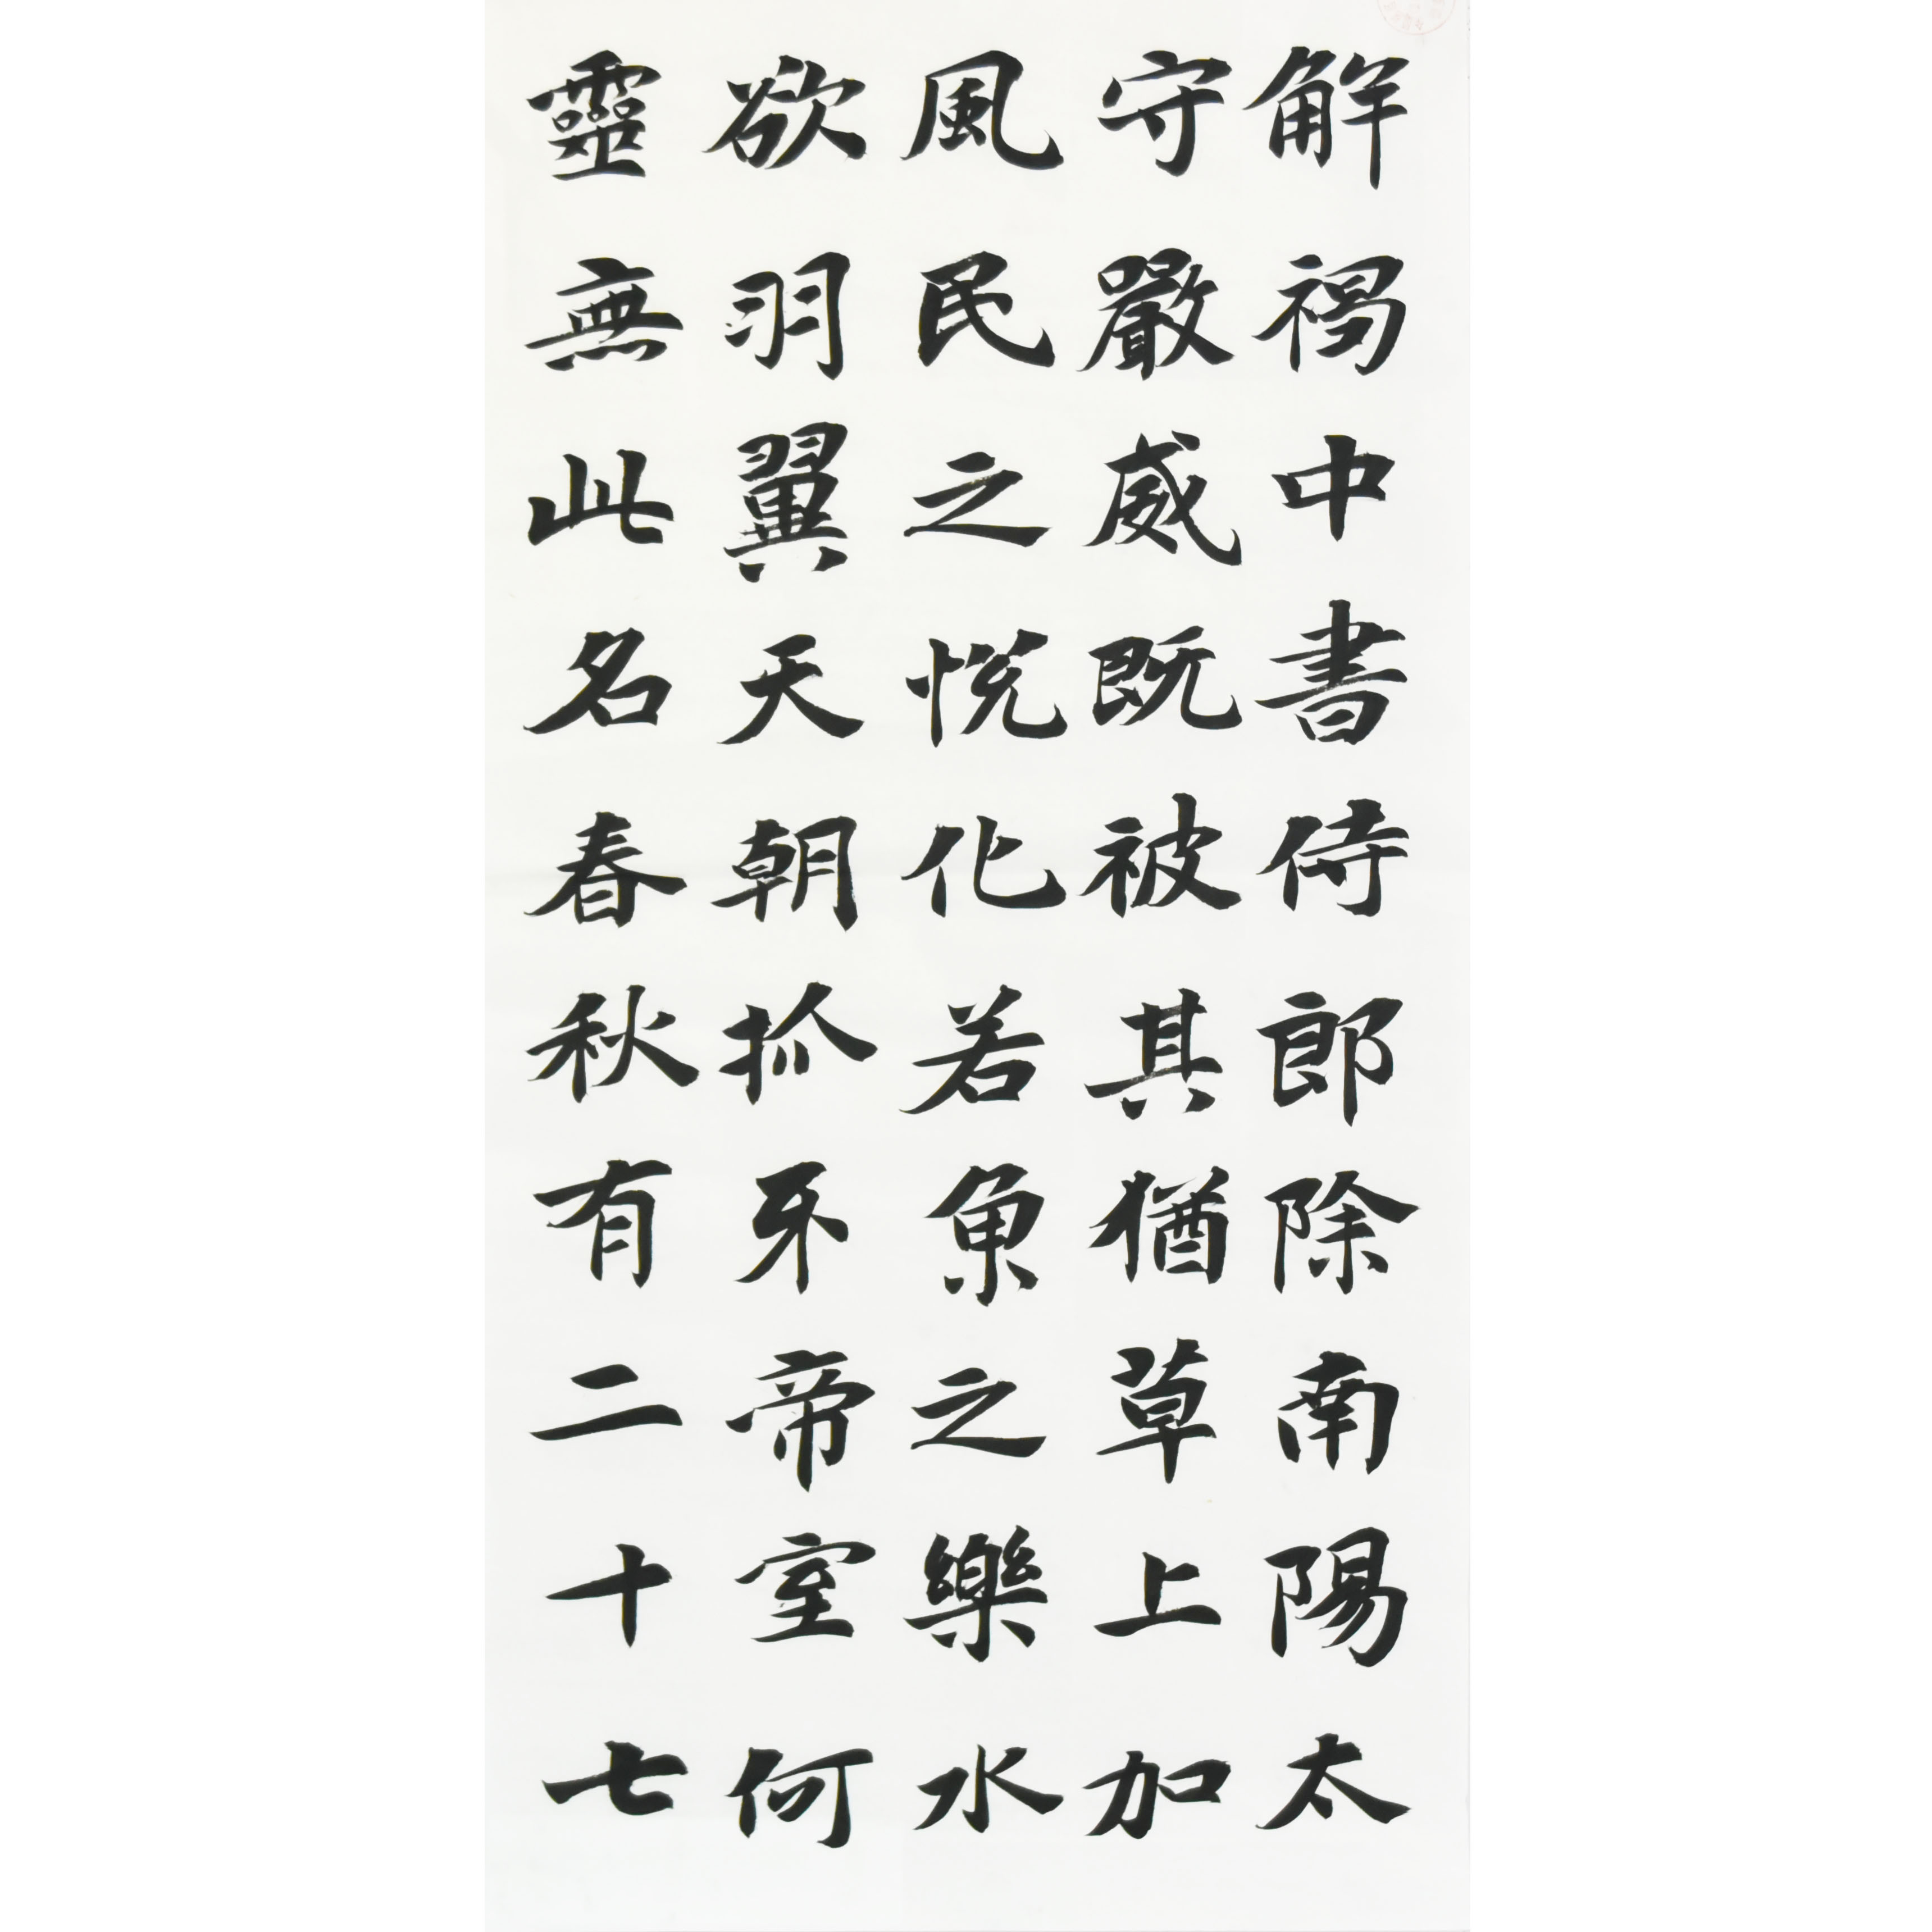 解褐中書侍郎除南陽太
守嚴威既被其猶草上加
風民之悅化若魚之樂水
欲羽翼天朝抓牙帝室何
靈無此名春秋有二十七